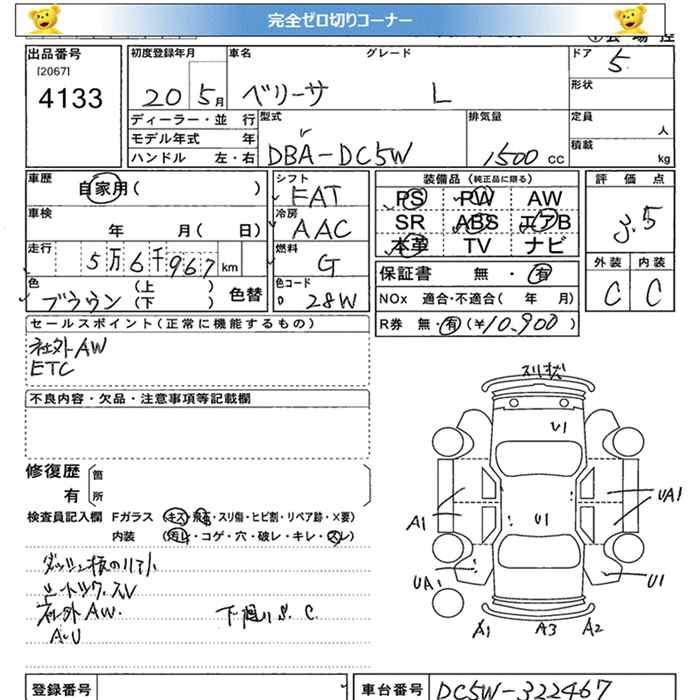 完全ゼロ切りコーナー
出品番号
[2067]
4133
初度登録年月
20 5月
車名
ベリーサ
グレード
L
ドア
5
形状
ディーラー・並 行
モデル年式 年
ハンドル 左・右
型式
DBA-DC5W
排気量
1500 CC
定員
人
積載
kg
車歴
自家用( )
シフト
FAT
装備品 (純正品に限る)
PS PW AW
SR ABS エアB
本革 TV ナビ
評価点
3.5
車検
年 月( 日)
冷房
AAC
走行
5万6千967 km
燃料
G
外装 内装
C C
色
ブラウン (上 ) (下 ) 色替
色コード
28W
保証書 無・有
NOx 適合・不適合( 年 月)
R券 無・有 (¥10,900)
セールスポイント(正常に機能するもの)
社外AW
ETC
不良内容・欠品・注意事項等記載欄
修復歴
有
箇
所
検査員記入欄 Fガラス (キズ・飛石・スリ傷・ヒビ割・リペア跡・X要)
内装 (汚レ・コゲ・穴・破レ・キレ・スレ)
社外AW.
A・U
U1
U1
A1
UA1
UA1
U1
A1 A3 A2
登録番号
車台番号
DC5W-322467